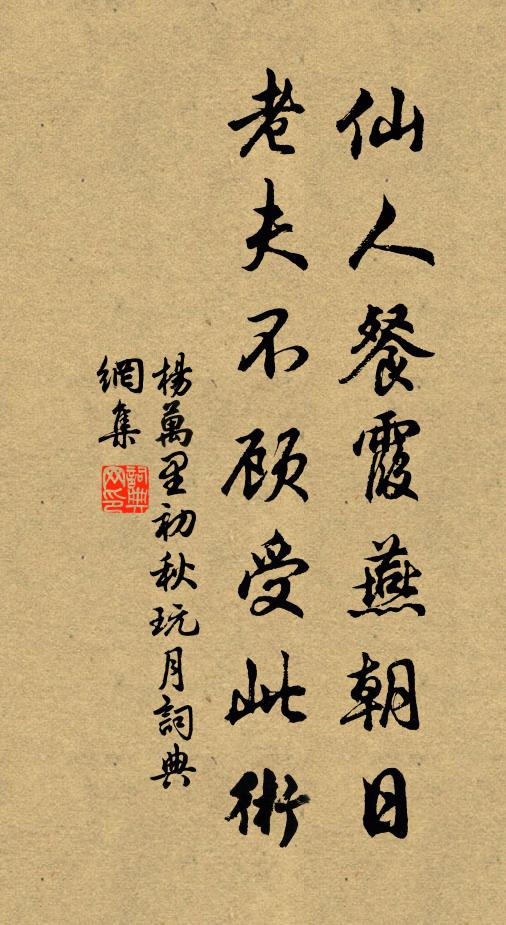 仙人餐霞燕朝日
老夫不顾受此術
楊萬里初秋玩月詞典
網集
詞典網印